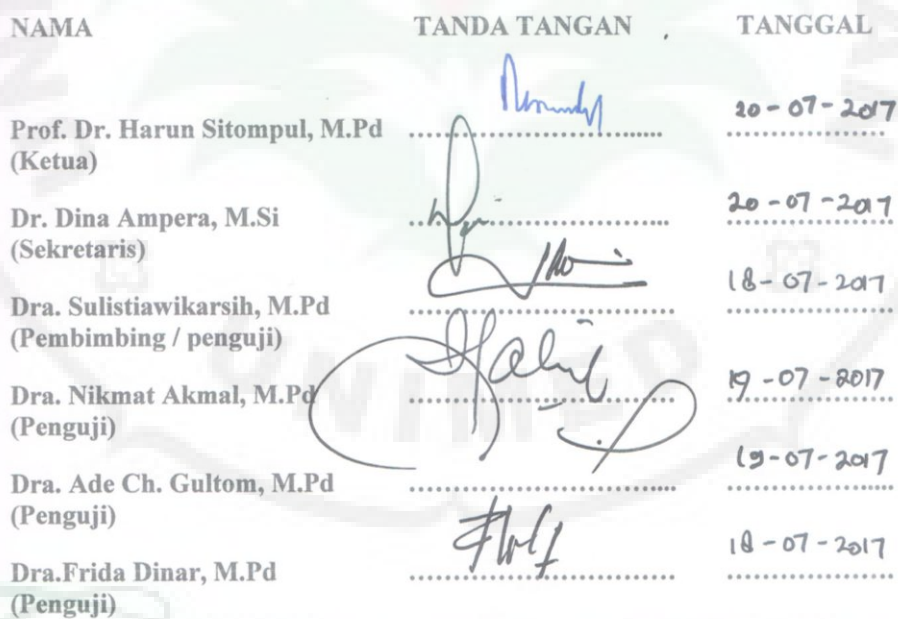 NAMA TANDA TANGAN TANGGAL
20-07-2017
Prof. Dr. Harun Sitompul, M.Pd ..............................
(Ketua)
20-07-2017
Dr. Dina Ampera, M.Si ..............................
(Sekretaris)
18-07-2017
Dra. Sulistiawikarsih, M.Pd ..............................
(Pembimbing / penguji)
19-07-2017
Dra. Nikmat Akmal, M.Pd ..............................
(Penguji)
19-07-2017
Dra. Ade Ch. Gultom, M.Pd ..............................
(Penguji)
18-07-2017
Dra.Frida Dinar, M.Pd ..............................
(Penguji)
UNIMED